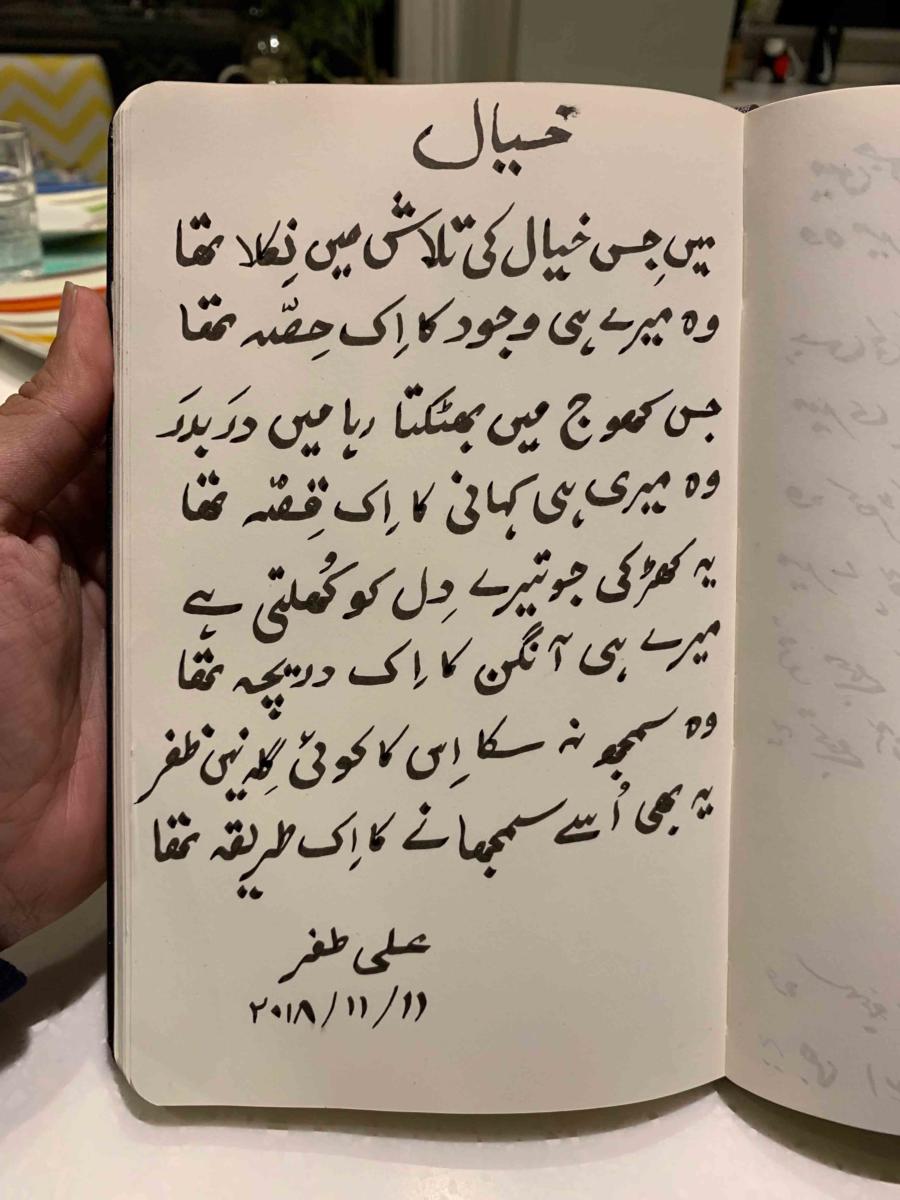 خیال
میں جِس خیال کی تلاش میں نِکلا تھا
وہ میرے ہی وجود کا اِک حِصّہ تھا
جس کھوج میں بھٹکتا رہا میں دَر بدَر
وہ میری ہی کہانی کا اِک قِصّہ تھا
یہ کھڑکی جو تیرے دِل کو کُھلتی ہے
میرے ہی آنگن کا اِک دریچہ تھا
وہ سمجھ نہ سکا اِس کا کوئی گِلہ نہیں ظفر
یہ بھی اُسے سمجھانے کا اِک طریقہ تھا
علی ظفر
۲۰۱۸/۱۱/۱۱